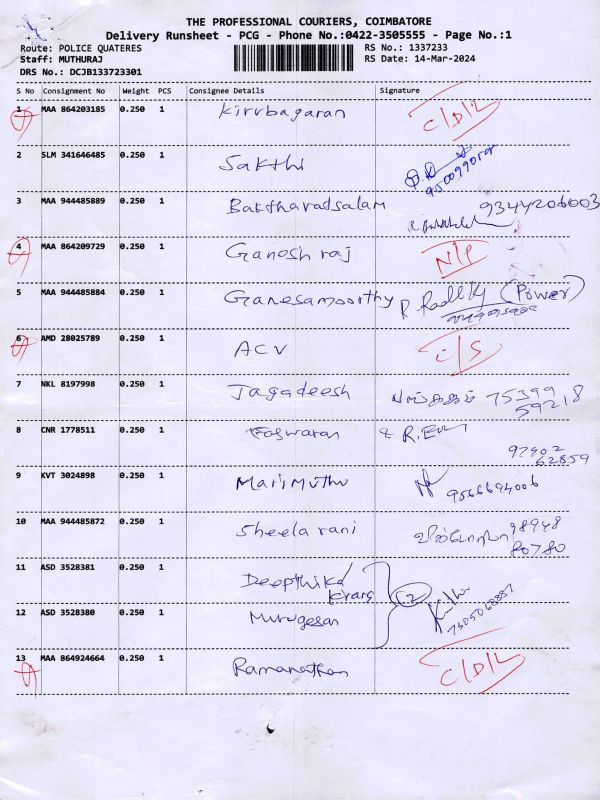 THE PROFESSIONAL COURIERS, COIMBATORE
Delivery Runsheet - PCG - Phone No.:0422-3505555 - Page No.:1
Route: POLICE QUATERES RS No.: 1337233
Staff: MUTHURAJ RS Date: 14-Mar-2024
DRS No.: DCJB133723301
S No Consignment No Weight PCS Consignee Details Signature
1 MAA 864203185 0.250 1 Kirubagaran C/D/L
2 SLM 341646485 0.250 1 Sakthi
3 MAA 944485889 0.250 1 Baktharadsalam 9344206003
4 MAA 864209729 0.250 1 Ganesh raj N/P
5 MAA 944485884 0.250 1 Ganesamoorthy R (Power)
6 AMD 28025789 0.250 1 ACV I/S
7 NKL 8197998 0.250 1 Jagadeesh 75399
59218
8 CNR 1778511 0.250 1 Easwaran
97902
62859
9 KVT 3024898 0.250 1 Marimuthu 9566694006
10 MAA 944485872 0.250 1 Sheela rani 98948
80780
11 ASD 3528381 0.250 1 Deepthika
12 ASD 3528380 0.250 1 Murugesan
13 MAA 864924664 0.250 1 Ramanathan C/D/L